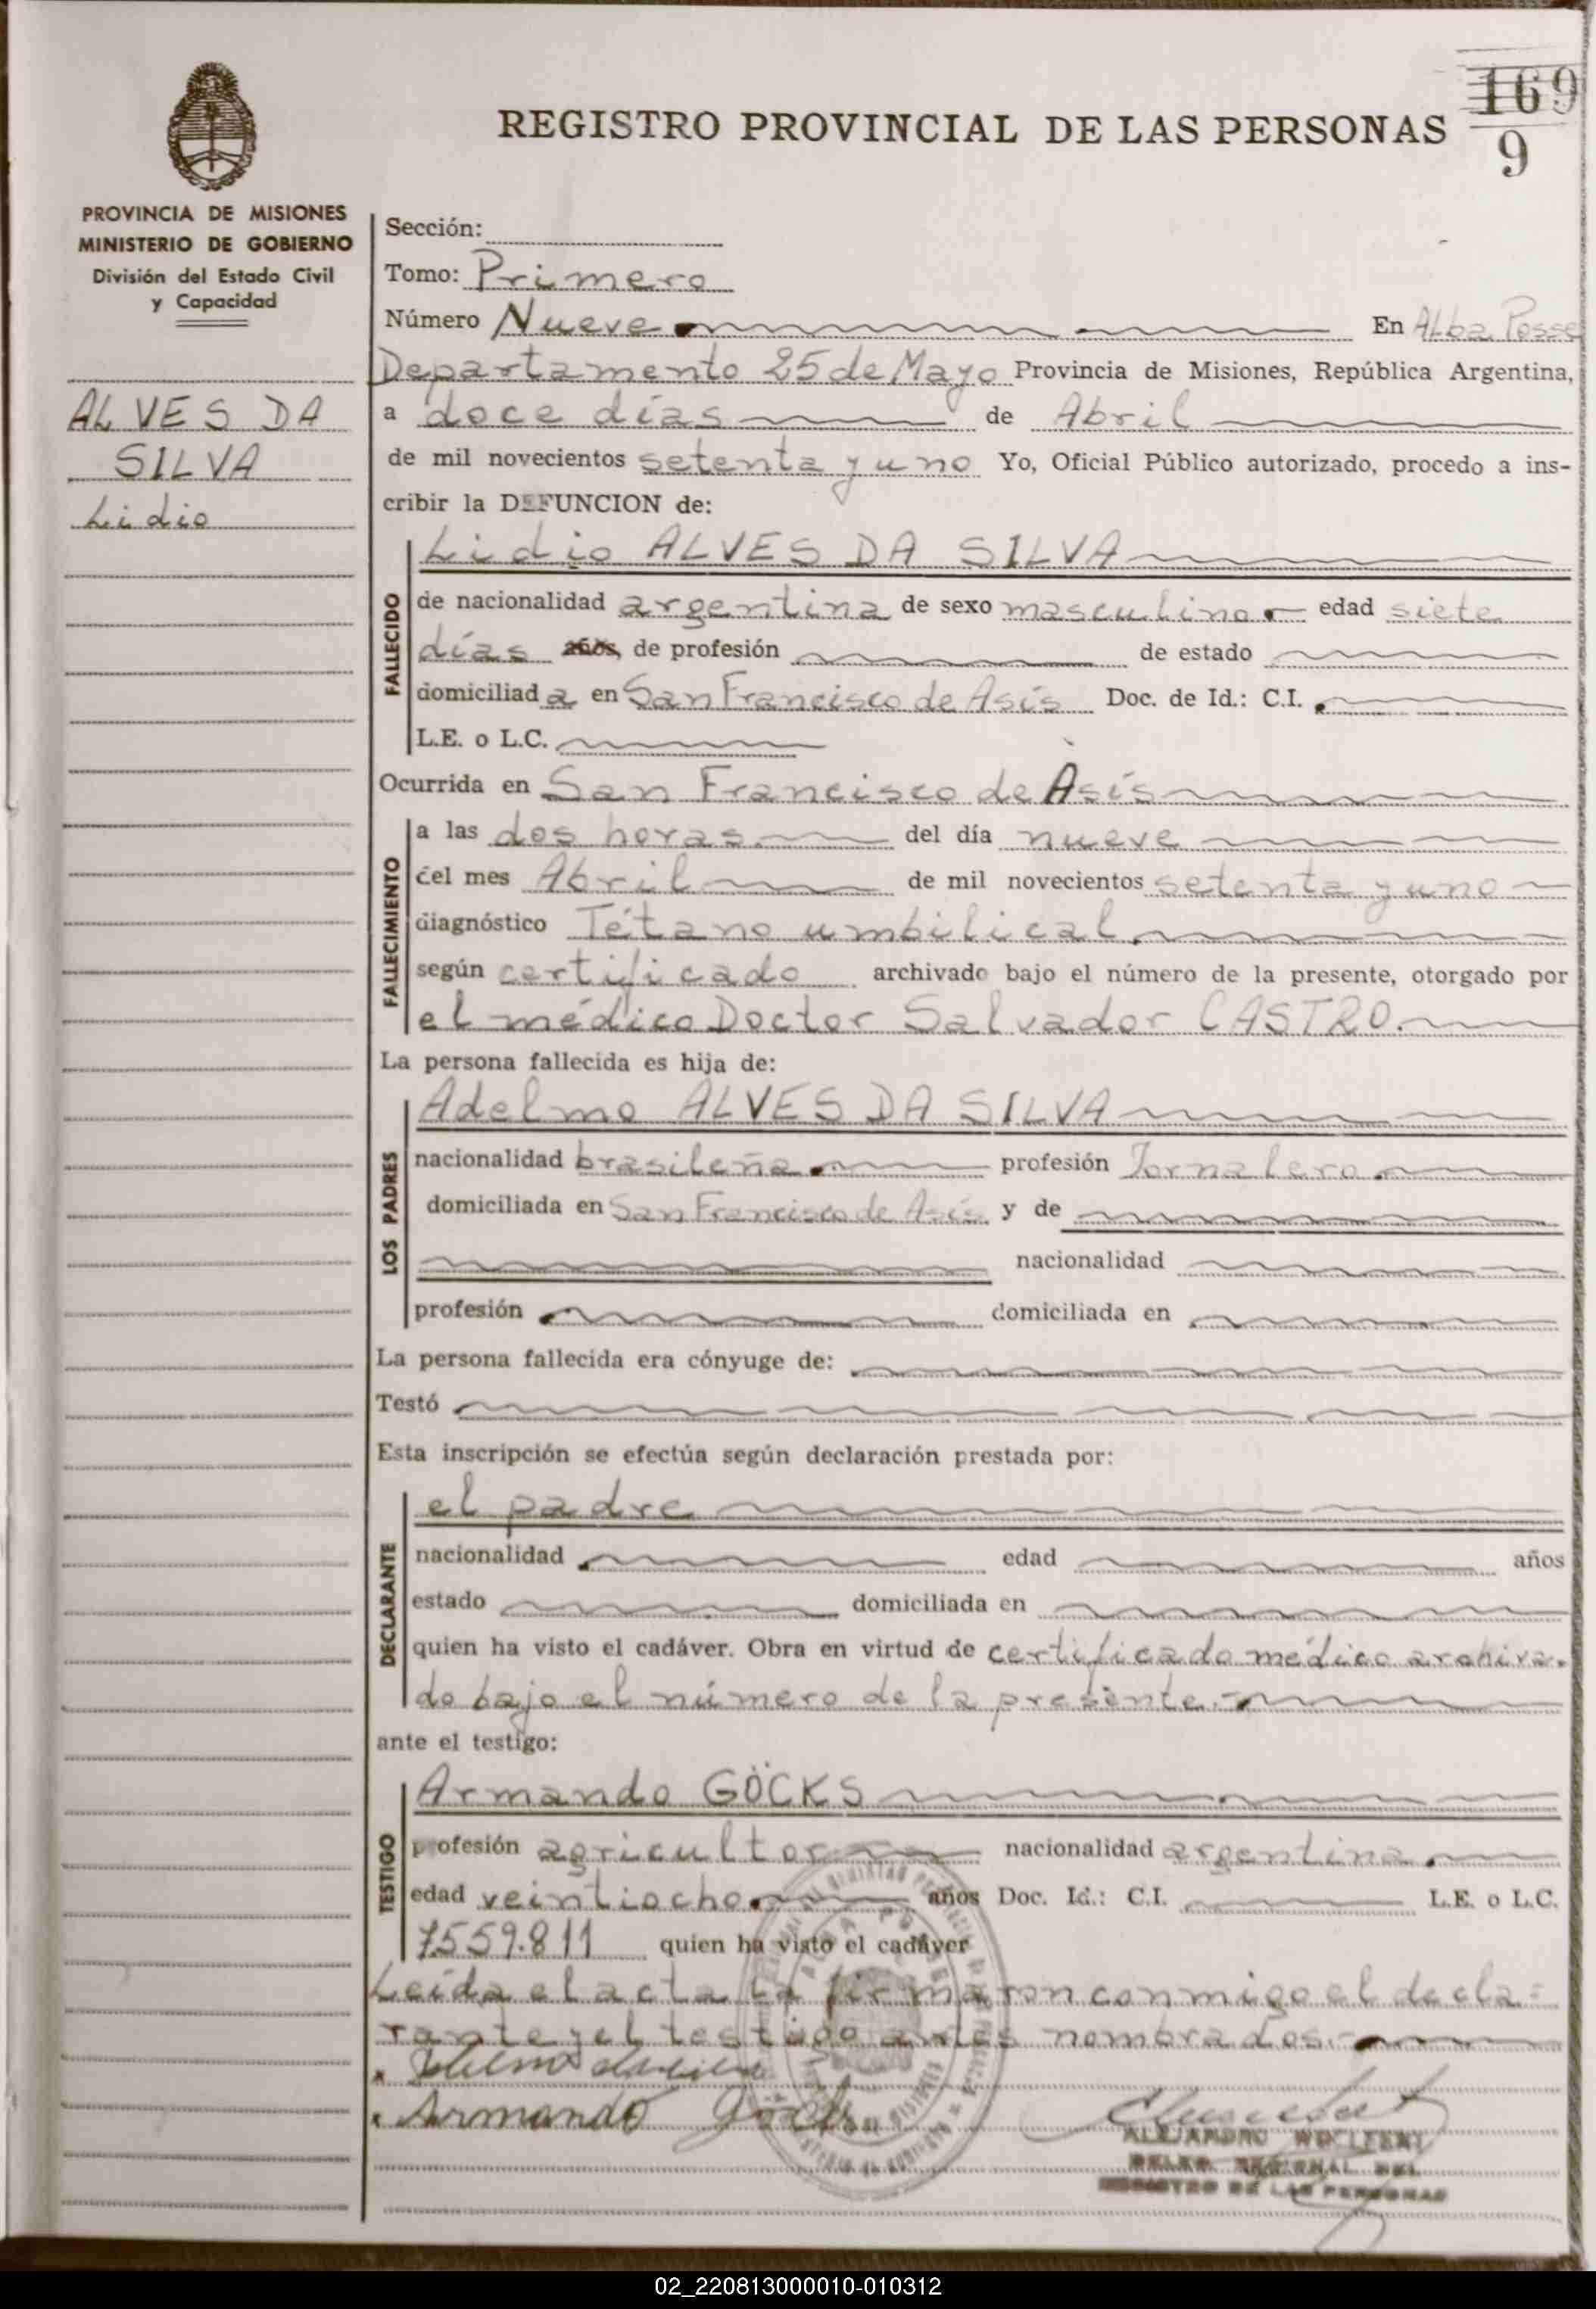 169
9
REGISTRO PROVINCIAL DE LAS PERSONAS
PROVINCIA DE MISIONES
MINISTERIO DE GOBIERNO
División del Estado Civil
y Capacidad
ALVES DA
SILVA
Lidio
Sección:
Tomo: Primero
Número Nueve En Alba Posse
Departamento 25 de Mayo Provincia de Misiones, República Argentina,
a doce días de Abril
de mil novecientos setenta y uno Yo, Oficial Público autorizado, procedo a ins-
cribir la DEFUNCION de:
FALLECIDO
Lidio ALVES DA SILVA
de nacionalidad argentina de sexo masculino edad siete
días años, de profesión de estado
domiciliada en San Francisco de Asís Doc. de Id.: C.I.
L.E. o L.C.
Ocurrida en San Francisco de Asís
FALLECIMIENTO
a las dos horas. del día nueve
del mes Abril de mil novecientos setenta y uno
diagnóstico Tétano umbilical.
según certificado archivado bajo el número de la presente, otorgado por
el médico Doctor Salvador CASTRO.
La persona fallecida es hija de:
LOS PADRES
Adelmo ALVES DA SILVA
nacionalidad brasileña profesión Jornalero
domiciliada en San Francisco de Asís y de
nacionalidad
profesión domiciliada en
La persona fallecida era cónyuge de:
Testó
Esta inscripción se efectúa según declaración prestada por:
DECLARANTE
el padre
nacionalidad edad años
estado domiciliada en
quien ha visto el cadáver. Obra en virtud de certificado médico archiva-
do bajo el número de la presente.-
ante el testigo:
TESTIGO
Armando GÖCKS
profesión agricultor nacionalidad argentina
edad veintiocho años Doc. Id.: C.I. L.E. o L.C.
7559.811 quien ha visto el cadáver
Leída el acta la firmaron conmigo el decla=
rante y el testigo antes nombrados.-
Armando Göcks
ALEJANDRO
REGISTRO DE LAS PERSONAS
02_220813000010-010312